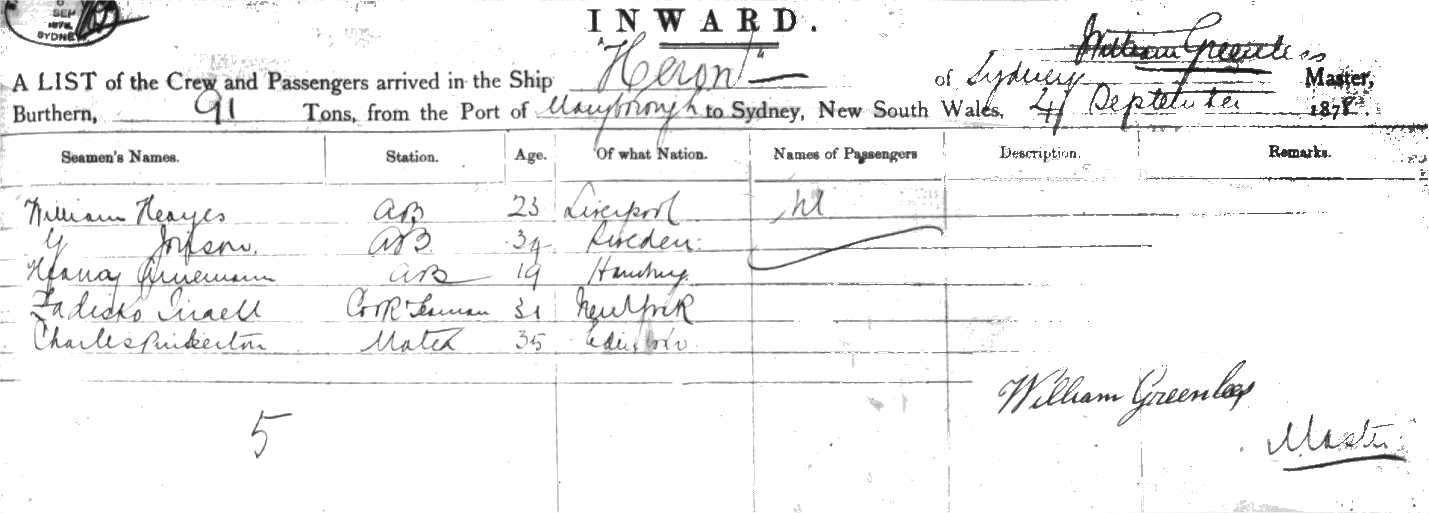 SEP
1878
SYDNEY
INWARD.
William Greenlees
A LIST of the Crew and Passengers arrived in the Ship "Heron" of Sydney Master,
Burthern, 91 Tons, from the Port of Maryborough to Sydney, New South Wales, 4 September 1878.
Seamen's Names. Station. Age. Of what Nation. Names of Passengers Description. Remarks.
William Heayes AB 23 Liverpool Nil
AB 39 Sweden
AB 19 Hamburg
Cook & Seaman 31 New York
Charles Pinkerton Mate 35
William Greenlees
5
Master